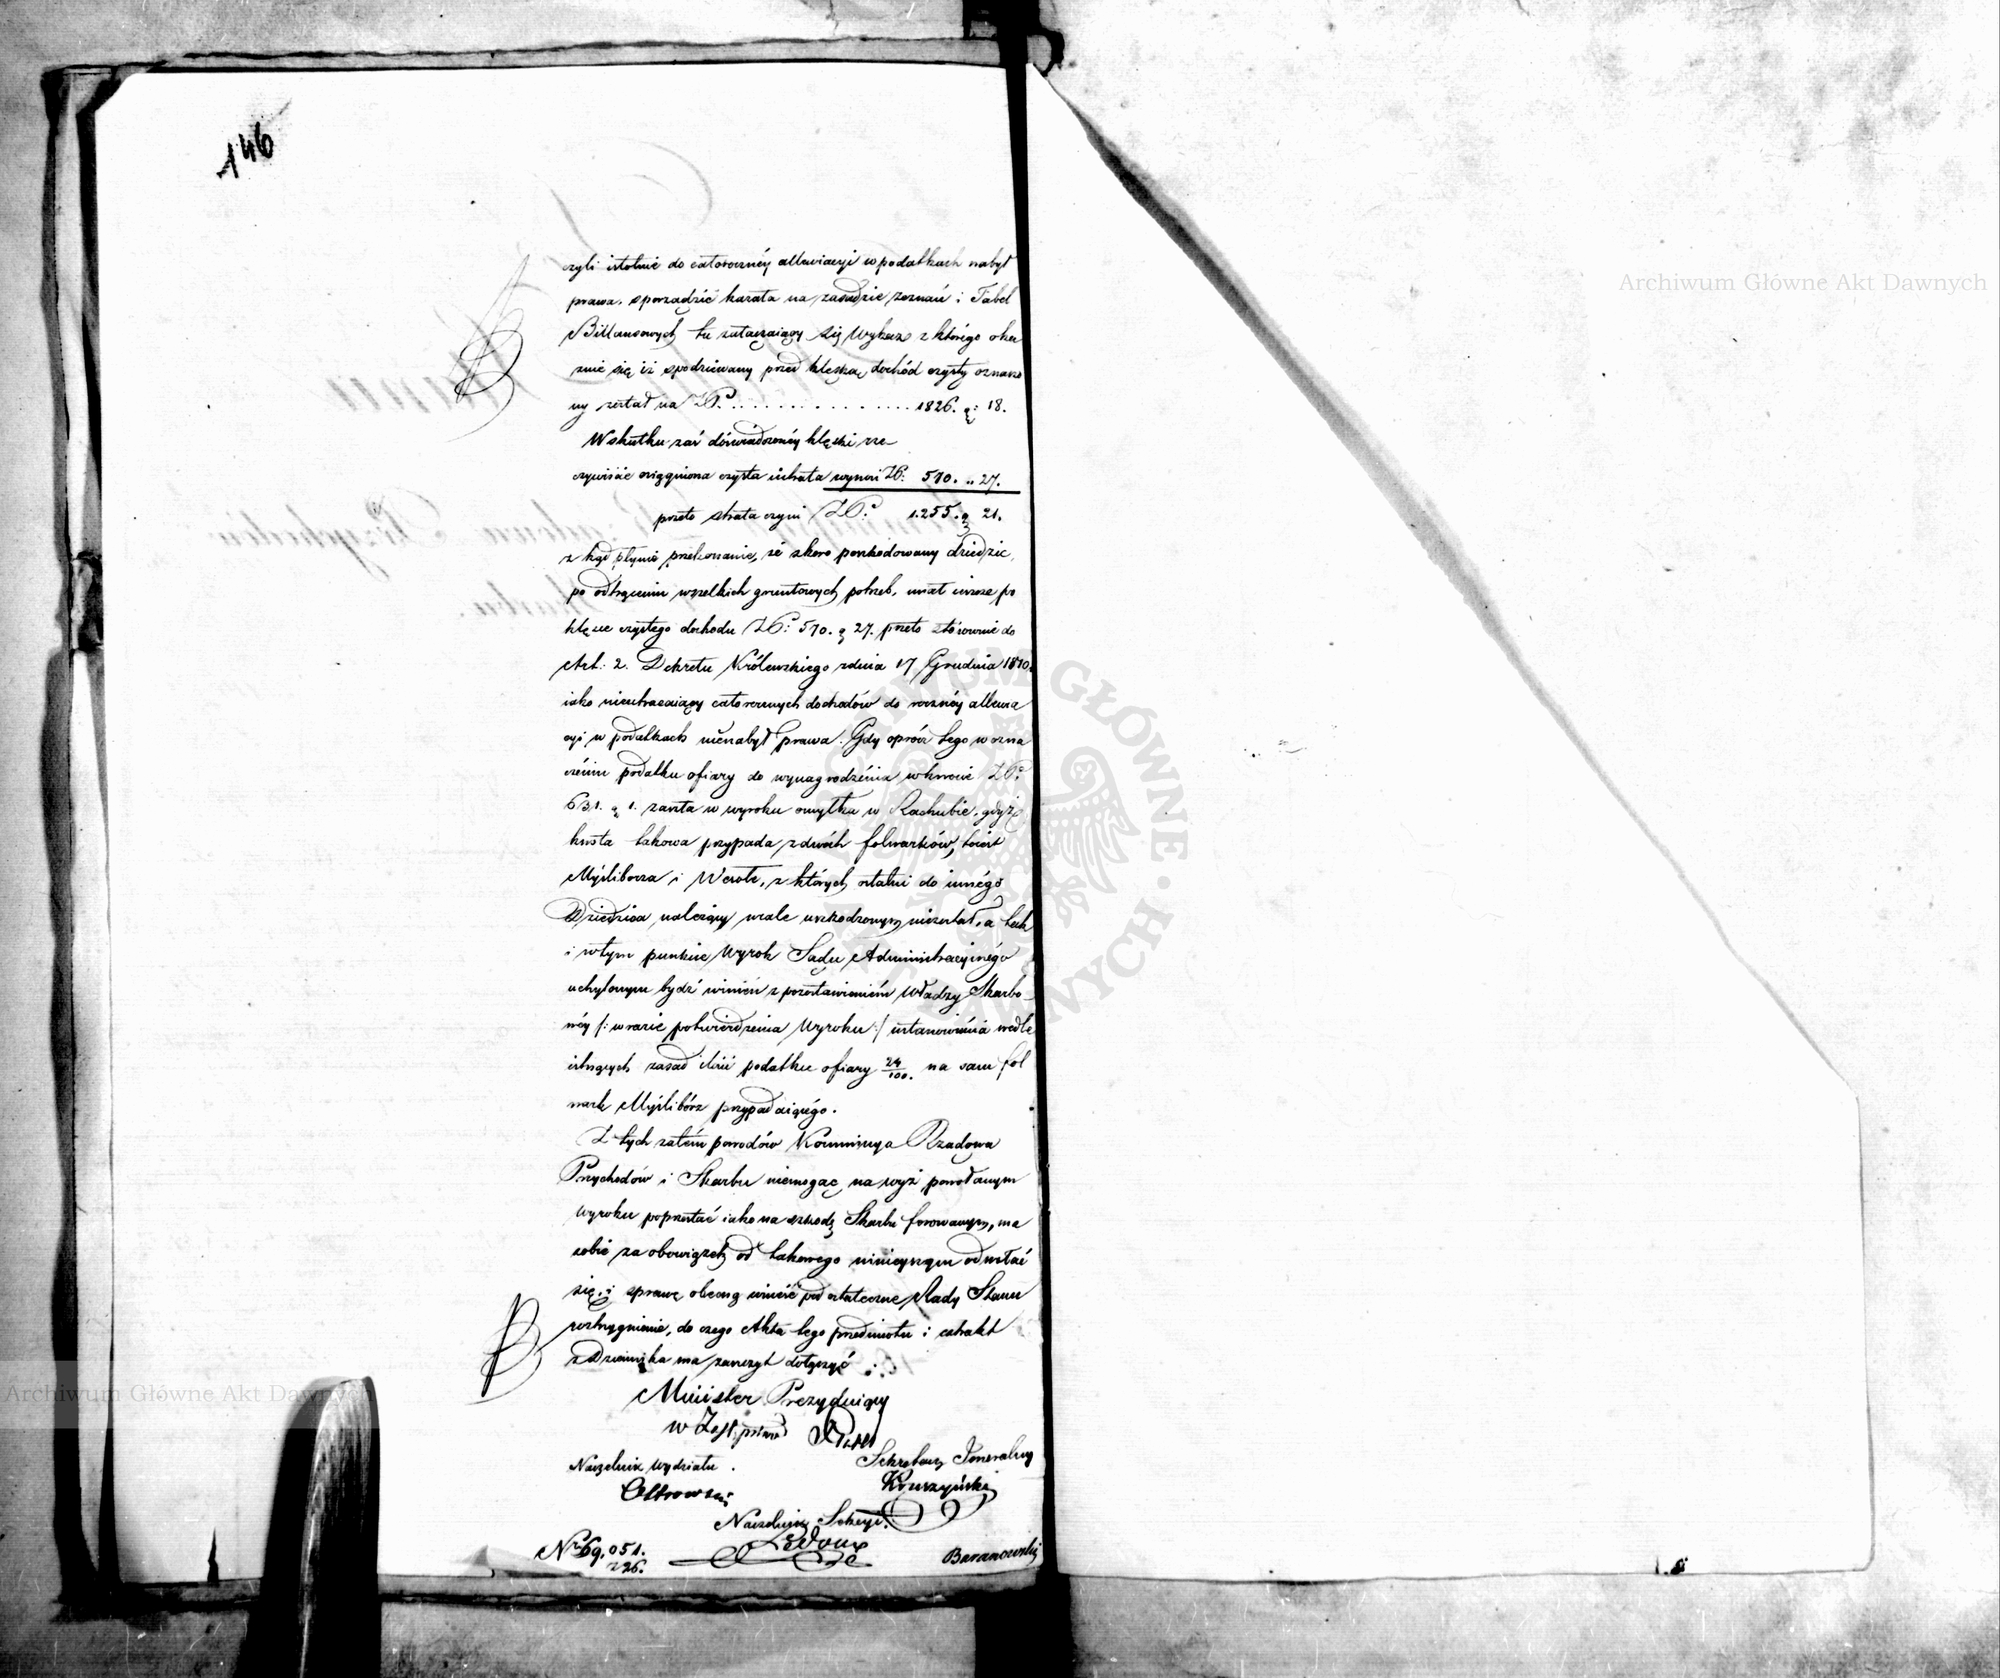 146
czyli istotnie do całorocznéy allewiacyi w podatkach nabył
prawa, sporządzić kazała na zasadzie zeznań i Tabel
Billansowych tu załączaiący się Wykaz z którego oka
zuie się iż spodziewany przed klęską dochód czysty oznaczo
ny został na ZłP. . . . . . . . . . . . . . . 1826. gr: 18.
W skutku zaś doświadczonéy klęski rze
czywiście osiągniona czysta intrata wynosi ZłP: 570. „ 27.
przeto strata czyni ZłP: 1.255. gr 21.
z kąd płynie przekonanie, że skoro poszkodowany dziedzic,
po odtrąceniu wszelkich gruntowych potrzeb, miał ieszcze po
klęsce czystego dochodu ZłP: 570. gr 27. przeto stosownie do
Art: 2. Dekretu Królewskiego z dnia 17 Grudnia 1810.
iako nieutracaiący całorocznych dochodów do roczney allewia
cyi w podatkach nienabył prawa. Gdy oprócz tego w ozna
czeniu podatku ofiary do wynagrodzenia w kwocie ZłP.
631. gr 1. zaszła w wyroku omyłka w Rachubie, gdyż
kwota takowa przypada z dwóch folwarków, to iest
Myśliborza i , z których ostatni do innégo
Dziedzica należący wcale uszkodzonym niezostał, a tak
i w tym punkcie Wyrok Sądu Administracyinégo
uchylonym bydź winien z pozostawieniem Władzy Skarbo-
wéy /: w razie potwierdzenia Wyroku :/ ustanowienia wedle
istnących zasad ilości podatku ofiary 24/100. na sam fol
wark Myślibórz przypadaiącégo.
Z tych zatém powodów Kommissya Rządowa
Przychodów i Skarbu niemogąc na wyż powołanym
wyroku poprzestać iako na szkodę Skarbu ferowanym, ma
sobie za obowiązek od takowego ninieyszym odwołać
się, i sprawę obecną wnieść pod ostateczne Rady Stanu
rozstrzygnienie, do czego Akta tego przedmiotu i extrakt
z Dziennika ma zaszczyt dołączyć
Minister Prezyduiący
w Zastępstwie
Naczelnik Wydziału. Sekretarz Jeneralny
Ostrowski Kruszyński
Naczelnik Sekcyi.
Ledoux
No 69,051.
226. Baranowski
Archiwum Główne Akt Dawnych
Archiwum Główne Akt Dawnych
ARCHIWUM GŁÓWNE AKT DAWNYCH